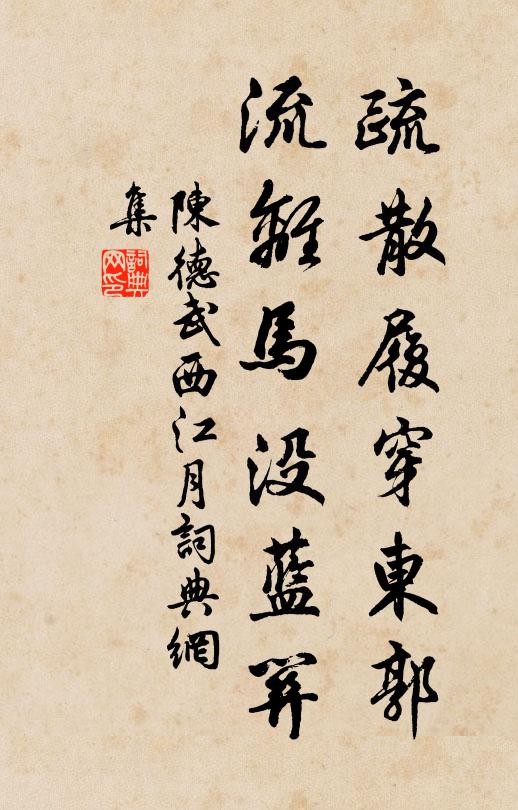 疏散履穿東郭
流離馬没藍關
陳德武西江月詞典網
集
詞典網印